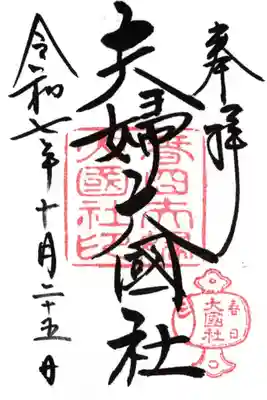 奉拝
夫婦大國社
令和七年十月二十五日
春日夫婦
大國社印
春日
大國社